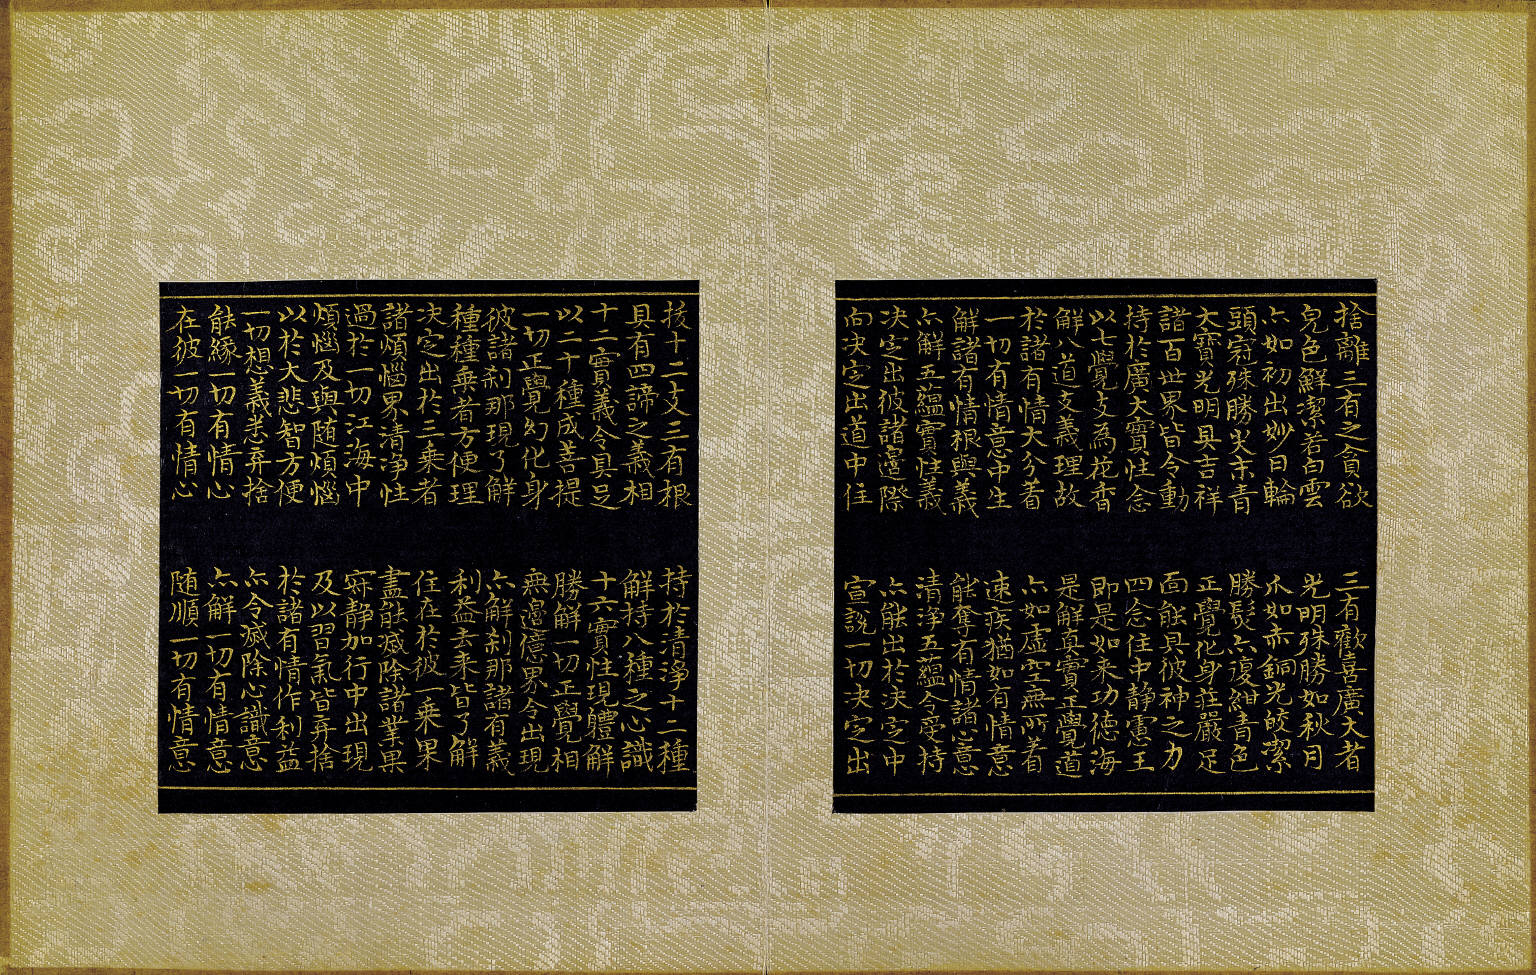 捨離三有之貪欲　三有歡喜廣大者
皃色鮮潔若白雲　光明殊勝如秋月
亦如初出妙日輪　爪如赤銅光皎潔
頭冠殊勝尖末青　勝髮亦復紺青色
大寶光明具吉祥　正覺化身莊嚴足
諸百世界皆令動　而能具彼神之力
持於廣大實性念　四念住中静慮王
以七覺支為花香　即是如來功德海
解八道支義理故　是解真實正覺道
於諸有情大分著　亦如虛空無所著
一切有情意中生　速疾猶如有情意
解諸有情根與義　能奪有情諸心意
亦解五蘊實性義　清淨五蘊令受持
決定出彼諸邊際　亦能出於決定中
向決定出道中住　宣說一切決定出
拔十二支三有根　持於清淨十二種
具有四諦之義相　解持八種之心識
十二實義令具足　十六實性現軆解
以二十種成菩提　勝解一切正覺相
一切正覺幻化身　無邊億界令出現
彼諸剎那現了解　亦解剎那諸有義
種種乘者方便理　利益去來皆了解
決定出於三乘者　住在於彼一乘果
諸煩惱界清淨性　盡能滅除諸業果
過於一切江海中　寂静加行中出現
煩惱及與随煩惱　及以習氣皆弃捨
以於大悲智方便　於諸有情作利益
一切想義悉弃捨　亦令滅除心識意
能緣一切有情心　亦解一切有情意
在彼一切有情心　随順一切有情意